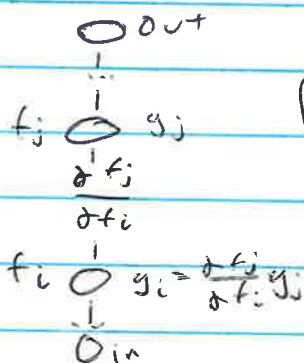 out
fj gj
∂fj
∂fi
fi gi = ∂fj/∂fi gj
in